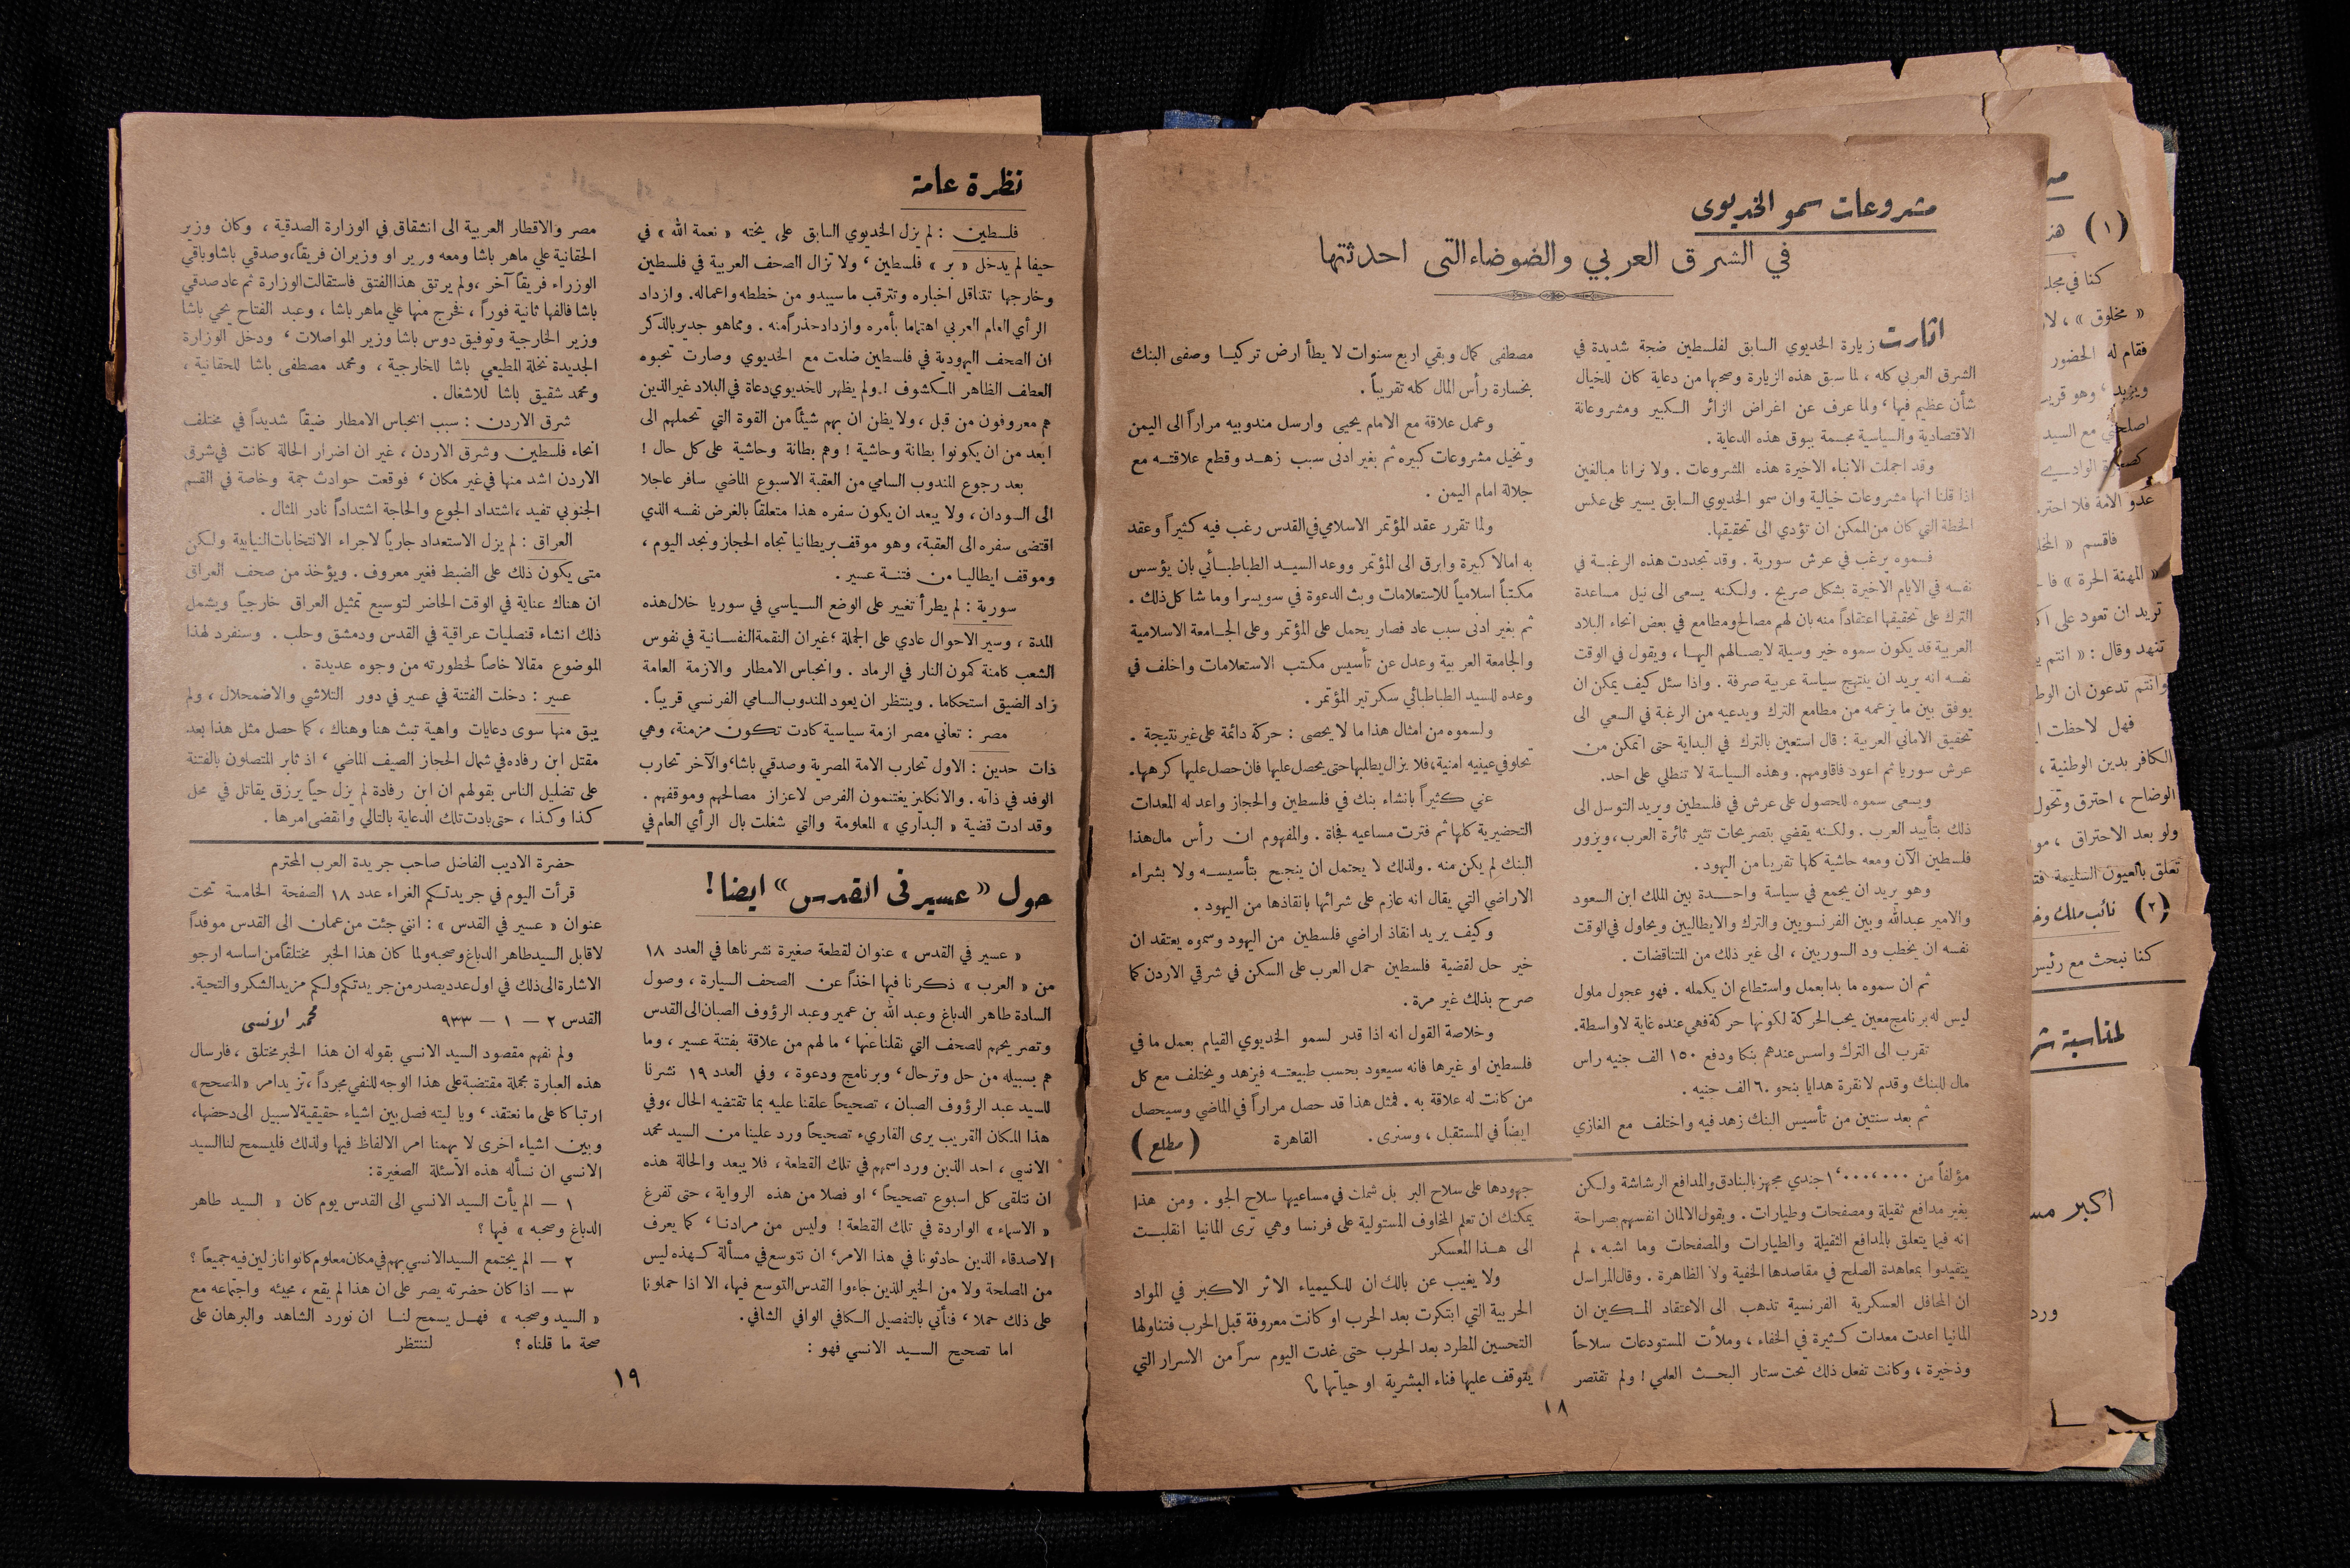 مشروعات سمو الخديوي
في الشرق العربي والضوضاء التى احدثتها
اثارت زيارة الخديوي السابق لفلسطين ضجة شديدة في
الشرق العربي كله ، لما سبق هذه الزيارة وصحبها من دعاية كان للخيال
شأن عظيم فيها ، ولما عرف عن اغراض الزائر الكبير ومشروعاته
الاقتصادية والسياسية مجسمة ببوق هذه الدعاية .
وقد اجملت الانباء الاخيرة هذه المشروعات . ولا ترانا مبالغين
اذا قلنا انها مشروعات خيالية وان سمو الخديوي السابق يسير على عكس
الخطة التي كان من الممكن ان تؤدي الى تحقيقها.
فسموه يرغب في عرش سورية . وقد تجددت هذه الرغبة في
نفسه في الايام الاخيرة بشكل صريح . ولكنه يسعى الى نيل مساعدة
الترك على تحقيقها اعتقاداً منه بان لهم مصالح ومطامع في بعض انحاء البلاد
العربية قد يكون سموه خير وسيلة لايصالهم اليها ، ويقول في الوقت
نفسه انه يريد ان ينتهج سياسة عربية صرفة . واذا سئل كيف يمكن ان
يوفق بين ما يزعمه من مطامع الترك ويدعيه من الرغبة في السعي الى
تحقيق الاماني العربية : قال استعين بالترك في البداية حتى اتمكن من
عرش سوريا ثم اعود فاقاومهم. وهذه السياسة لا تنطلي على احد.
ويسعى سموه للحصول على عرش في فلسطين ويريد التوسل الى
ذلك بتأييد العرب . ولكنه يقضي بتصريحات تثير ثائرة العرب ، ويزور
فلسطين الآن ومعه حاشية كلها تقريبا من اليهود .
وهو يريد ان يجمع في سياسة واحدة بين الملك ابن السعود
والامير عبدالله وبين الفرنسويين والترك والايطاليين ويحاول في الوقت
نفسه ان يخطب ود السوريين ، الى غير ذلك من المتناقضات .
ثم ان سموه ما بدا بعمل واستطاع ان يكمله . فهو عجول ملول
ليس له برنامج معين يحب الحركة لكونها حركة فهي عنده غاية لا واسطة.
تقرب الى الترك واسس عندهم بنكا ودفع ١٥٠ الف جنيه راس
مال للبنك وقدم لانقرة هدايا بنحو ٦٠ الف جنيه .
ثم بعد سنتين من تأسيس البنك زهد فيه واختلف مع الغازي
مصطفى كمال وبقي اربع سنوات لا يطأ ارض تركيا وصفى البنك
بخسارة رأس المال كله تقريباً .
وعمل علاقة مع الامام يحيى وارسل مندوبيه مراراً الى اليمن
وتخيل مشروعات كبيره ثم بغير ادنى سبب زهد وقطع علاقته مع
جلالة امام اليمن .
ولما تقرر عقد المؤتمر الاسلامي في القدس رغب فيه كثيراً وعقد
به امالا كبيرة وابرق الى المؤتمر ووعد السيد الطباطبأئي بان يؤسس
مكتباً اسلامياً للاستعلامات وبث الدعوة في سويسرا وما شا كل ذلك .
ثم بغير ادنى سبب عاد فصار يحمل على المؤتمر وعلى الجامعة الاسلامية
والجامعة العربية وعدل عن تأسيس مكتب الاستعلامات واخلف في
وعده للسيد الطباطبائي سكرتير المؤتمر .
ولسموه من امثال هذا ما لا يحصى : حركة دائمة على غير نتيجة .
تحلو في عينيه امنية ، فلا يزال يطلبها حتى يحصل عليها فان حصل عليها كرهها.
عني كثيراً بانشاء بنك في فلسطين والحجاز واعد له المعدات
التحضيرية كلها ثم فترت مساعيه فجاة . والمفهوم ان رأس مال هذا
البنك لم يكن منه . ولذلك لا يحتمل ان ينجح بتأسيسه ولا بشراء
الاراضي التي يقال انه عازم على شرائها بانقاذها من اليهود .
وكيف يريد انقاذ اراضي فلسطين من اليهود وسموه يعتقد ان
خير حل لقضية فلسطين حمل العرب على السكن في شرقي الاردن كما
صرح بذلك غير مرة .
وخلاصة القول انه اذا قدر لسمو الخديوي القيام بعمل ما في
فلسطين او غيرها فانه سيعود بحسب طبيعته فيزهد ويختلف مع كل
من كانت له علاقة به . فمثل هذا قد حصل مراراً في الماضي وسيحصل
ايضاً في المستقبل ، وسنرى . القاهرة ( مطلع )
مؤلفاً من ١،٠٠٠،٠٠٠ جندي مجهز بالبنادق والمدافع الرشاشة ولكن
بغير مدافع ثقيلة ومصفحات وطيارات . ويقول الالمان انفسهم بصراحة
انه فيما يتعلق بالمدافع الثقيلة والطيارات والمصفحات وما اشبه ، لم
يتقيدوا بمعاهدة الصلح في مقاصدها الخفية ولا الظاهرة . وقال المراسل
ان المحافل العسكرية الفرنسية تذهب الى الاعتقاد المكين ان
المانيا اعدت معدات كثيرة في الخفاء ، وملأت المستودعات سلاحاً
وذخيرة ، وكانت تفعل ذلك تحت ستار البحث العلمي ! ولم تقتصر
جهودها على سلاح البر بل شملت في مساعيها سلاح الجو . ومن هذا
يمكنك ان تعلم المخاوف المستولية على فرنسا وهي ترى المانيا انقلبت
الى هذا المعسكر
ولا يغيب عن بالك ان للكيمياء الاثر الاكبر في المواد
الحربية التي ابتكرت بعد الحرب او كانت معروفة قبل الحرب فتناولها
التحسين المطرد بعد الحرب حتى غدت اليوم سراً من الاسرار التي
يتوقف عليها فناء البشرية او حياتها ؟
١٨
نظرة عامة
فلسطين : لم يزل الخديوي السابق على يخته « نعمة الله » في
حيفا لم يدخل « بر » فلسطين ، ولا تزال الصحف العربية في فلسطين
وخارجها تتناقل اخباره وتترقب ما سيبدو من خططه واعماله. وازداد
الرأي العام العربي اهتماما بأمره وازداد حذراً منه . ومما هو جدير بالذكر
ان الصحف اليهودية في فلسطين ضلعت مع الخديوي وصارت تحبوه
العطف الظاهر المكشوف ! ولم يظهر للخديوي دعاة في البلاد غير الذين
هم معروفون من قبل ، ولا يظن ان بهم شيئاً من القوة التي تحملهم الى
ابعد من ان يكونوا بطانة وحاشية ! وهم بطانة وحاشية على كل حال !
بعد رجوع المندوب السامي من العقبة الاسبوع الماضي سافر عاجلا
الى السودان ، ولا يبعد ان يكون سفره هذا متعلقاً بالغرض نفسه الذي
اقتضى سفره الى العقبة ، وهو موقف بريطانيا تجاه الحجاز ونجد اليوم ،
وموقف ايطاليا من فتنة عسير .
سورية : لم يطرأ تغيير على الوضع السياسي في سوريا خلال هذه
المدة ، وسير الاحوال عادي على الجملة ؛ غير ان النقمة النفسانية في نفوس
الشعب كامنة كمون النار في الرماد . وانحباس الامطار والازمة العامة
زاد الضيق استحكاما . وينتظر ان يعود المندوب السامي الفرنسي قريباً .
مصر : تعاني مصر ازمة سياسية كادت تكون مزمنة ، وهي
ذات حدين : الاول تحارب الامة المصرية وصدقي باشا ، والآخر تحارب
الوفد في ذاته . والانكليز يغتنمون الفرص لاعزاز مصالحهم وموقفهم .
وقد ادت قضية « البداري » المعلومة والتي شغلت بال الرأي العام في
مصر والاقطار العربية الى انشقاق في الوزارة الصدقية ، وكان وزير
الحقانية علي ماهر باشا ومعه وزير او وزيران فريقاً ، وصدقي باشا وباقي
الوزراء فريقاً آخر ، ولم يرتق هذا الفتق فاستقالت الوزارة ثم عاد صدقي
باشا فالفها ثانية فوراً ، فخرج منها علي ماهر باشا ، وعبد الفتاح يحي باشا
وزير الخارجية وتوفيق دوس باشا وزير المواصلات ، ودخل الوزارة
الجديدة نخلة المطيعي باشا للخارجية ، ومحمد مصطفى باشا للحقانية ،
ومحمد شفيق باشا للاشغال .
شرق الاردن : سبب انحباس الامطار ضيقاً شديداً في مختلف
انحاء فلسطين وشرق الاردن ، غير ان اضرار الحالة كانت في شرق
الاردن اشد منها في غير مكان ، فوقعت حوادث جمة وخاصة في القسم
الجنوبي تفيد ، اشتداد الجوع والحاجة اشتداداً نادر المثال .
العراق : لم يزل الاستعداد جارياً لاجراء الانتخابات النيابية ولكن
متى يكون ذلك على الضبط فغير معروف . ويؤخذ من صحف العراق
ان هناك عناية في الوقت الحاضر لتوسيع تمثيل العراق خارجياً ويشمل
ذلك انشاء قنصليات عراقية في القدس ودمشق وحلب . وسنفرد لهذا
الموضوع مقالا خاصاً لخطورته من وجوه عديدة .
عسير : دخلت الفتنة في عسير في دور التلاشي والاضمحلال ، ولم
يبق منها سوى دعايات واهية تبث هنا وهناك ، كما حصل مثل هذا بعد
مقتل ابن رفاده في شمال الحجاز الصيف الماضي ، اذ ثابر المتصلون بالفتنة
على تضليل الناس بقولهم ان ابن رفادة لم يزل حياً يرزق يقاتل في محل
كذا وكذا ، حتى بادت تلك الدعاية بالتالي وانقضى امرها .
حول « عسير في القدس » ايضا !
« عسير في القدس » عنوان لقطعة صغيرة نشرناها في العدد ١٨
من « العرب » ذكرنا فيها اخذاً عن الصحف السيارة ، وصول
السادة طاهر الدباغ وعبد الله بن عمير وعبد الرؤوف الصبان الى القدس
وتصريحهم للصحف التي نقلنا عنها ، ما لهم من علاقة بفتنة عسير ، وما
هم بسبيله من حل وترحال ، وبرنامج ودعوة ، وفي العدد ١٩ نشرنا
للسيد عبد الرؤوف الصبان ، تصحيحاً علقنا عليه بما تقتضيه الحال ، وفي
هذا المكان القريب يرى القاريء تصحيحاً ورد علينا من السيد محمد
الانسي ، احد الذين ورد اسمهم في تلك القطعة ، فلا يبعد والحالة هذه
ان نتلقى كل اسبوع تصحيحاً ، او فصلا من هذه الرواية ، حتى تفرغ
« الاسماء » الواردة في تلك القطعة ! وليس من مرادنا ، كما يعرف
الاصدقاء الذين حادثونا في هذا الامر ، ان نتوسع في مسألة كهذه ليس
من المصلحة ولا من الخير للذين جاءوا القدس التوسع فيها ، الا اذا حملونا
على ذلك حملا ، فنأتي بالتفصيل الكافي الوافي الشافي .
اما تصحيح السيد الانسي فهو :
حضرة الاديب الفاضل صاحب جريدة العرب المحترم
قرأت اليوم في جريدتكم الغراء عدد ١٨ الصفحة الخامسة تحت
عنوان « عسير في القدس » : انني جئت من عمان الى القدس موفداً
لاقابل السيد طاهر الدباغ وصحبه ولما كان هذا الخبر مختلقاً من اساسه ارجو
الاشارة الى ذلك في اول عدد يصدر من جريدتكم ولكم مزيد الشكر والتحية.
القدس ٢ — ١ — ٩٣٣ محمد الانسى
ولم نفهم مقصود السيد الانسي بقوله ان هذا الخبر مختلق ، فارسال
هذه العبارة مجملة مقتضبة على هذا الوجه للنفي مجرداً ، تزيد امر « المصحح »
ارتباكا على ما نعتقد ، ويا ليته فصل بين اشياء حقيقية لا سبيل الى دحضها ،
وبين اشياء اخرى لا يهمنا امر الالفاظ فيها ولذلك فليسمح لنا السيد
الانسي ان نسأله هذه الاسئلة الصغيرة :
١ — الم يأت السيد الانسي الى القدس يوم كان « السيد طاهر
الدباغ وصحبه » فيها ؟
٢ — الم يجتمع السيد الانسي بهم في مكان معلوم كانوا نازلين فيه جميعاً ؟
٣ — اذا كان حضرته يصر على ان هذا لم يقع ، مجيئه واجتماعه مع
« السيد وصحبه » فهل يسمح لنا ان نورد الشاهد والبرهان على
صحة ما قلناه ؟ لننتظر
١٩
( ١ )
كنا في مجلس
« مخلوق » ،
فقام له الحضور
ويزيد ، وهو
اصلحني مع السيد
عدو الامة فلا
فاقسم
« المهنة الحرة »
تريد ان تعود على
تنهد وقال : « انتم
وانتم تدعون ان
فهل لاحظت
الكافر بدين الوطنية ،
الوضاح ، احترق وتحول
ولو بعد الاحتراق ،
تعلق بالعيون السليمة
( ٢ ) نائب ملك
كنا نبحث مع رئيس
لمناسبة
اكبر